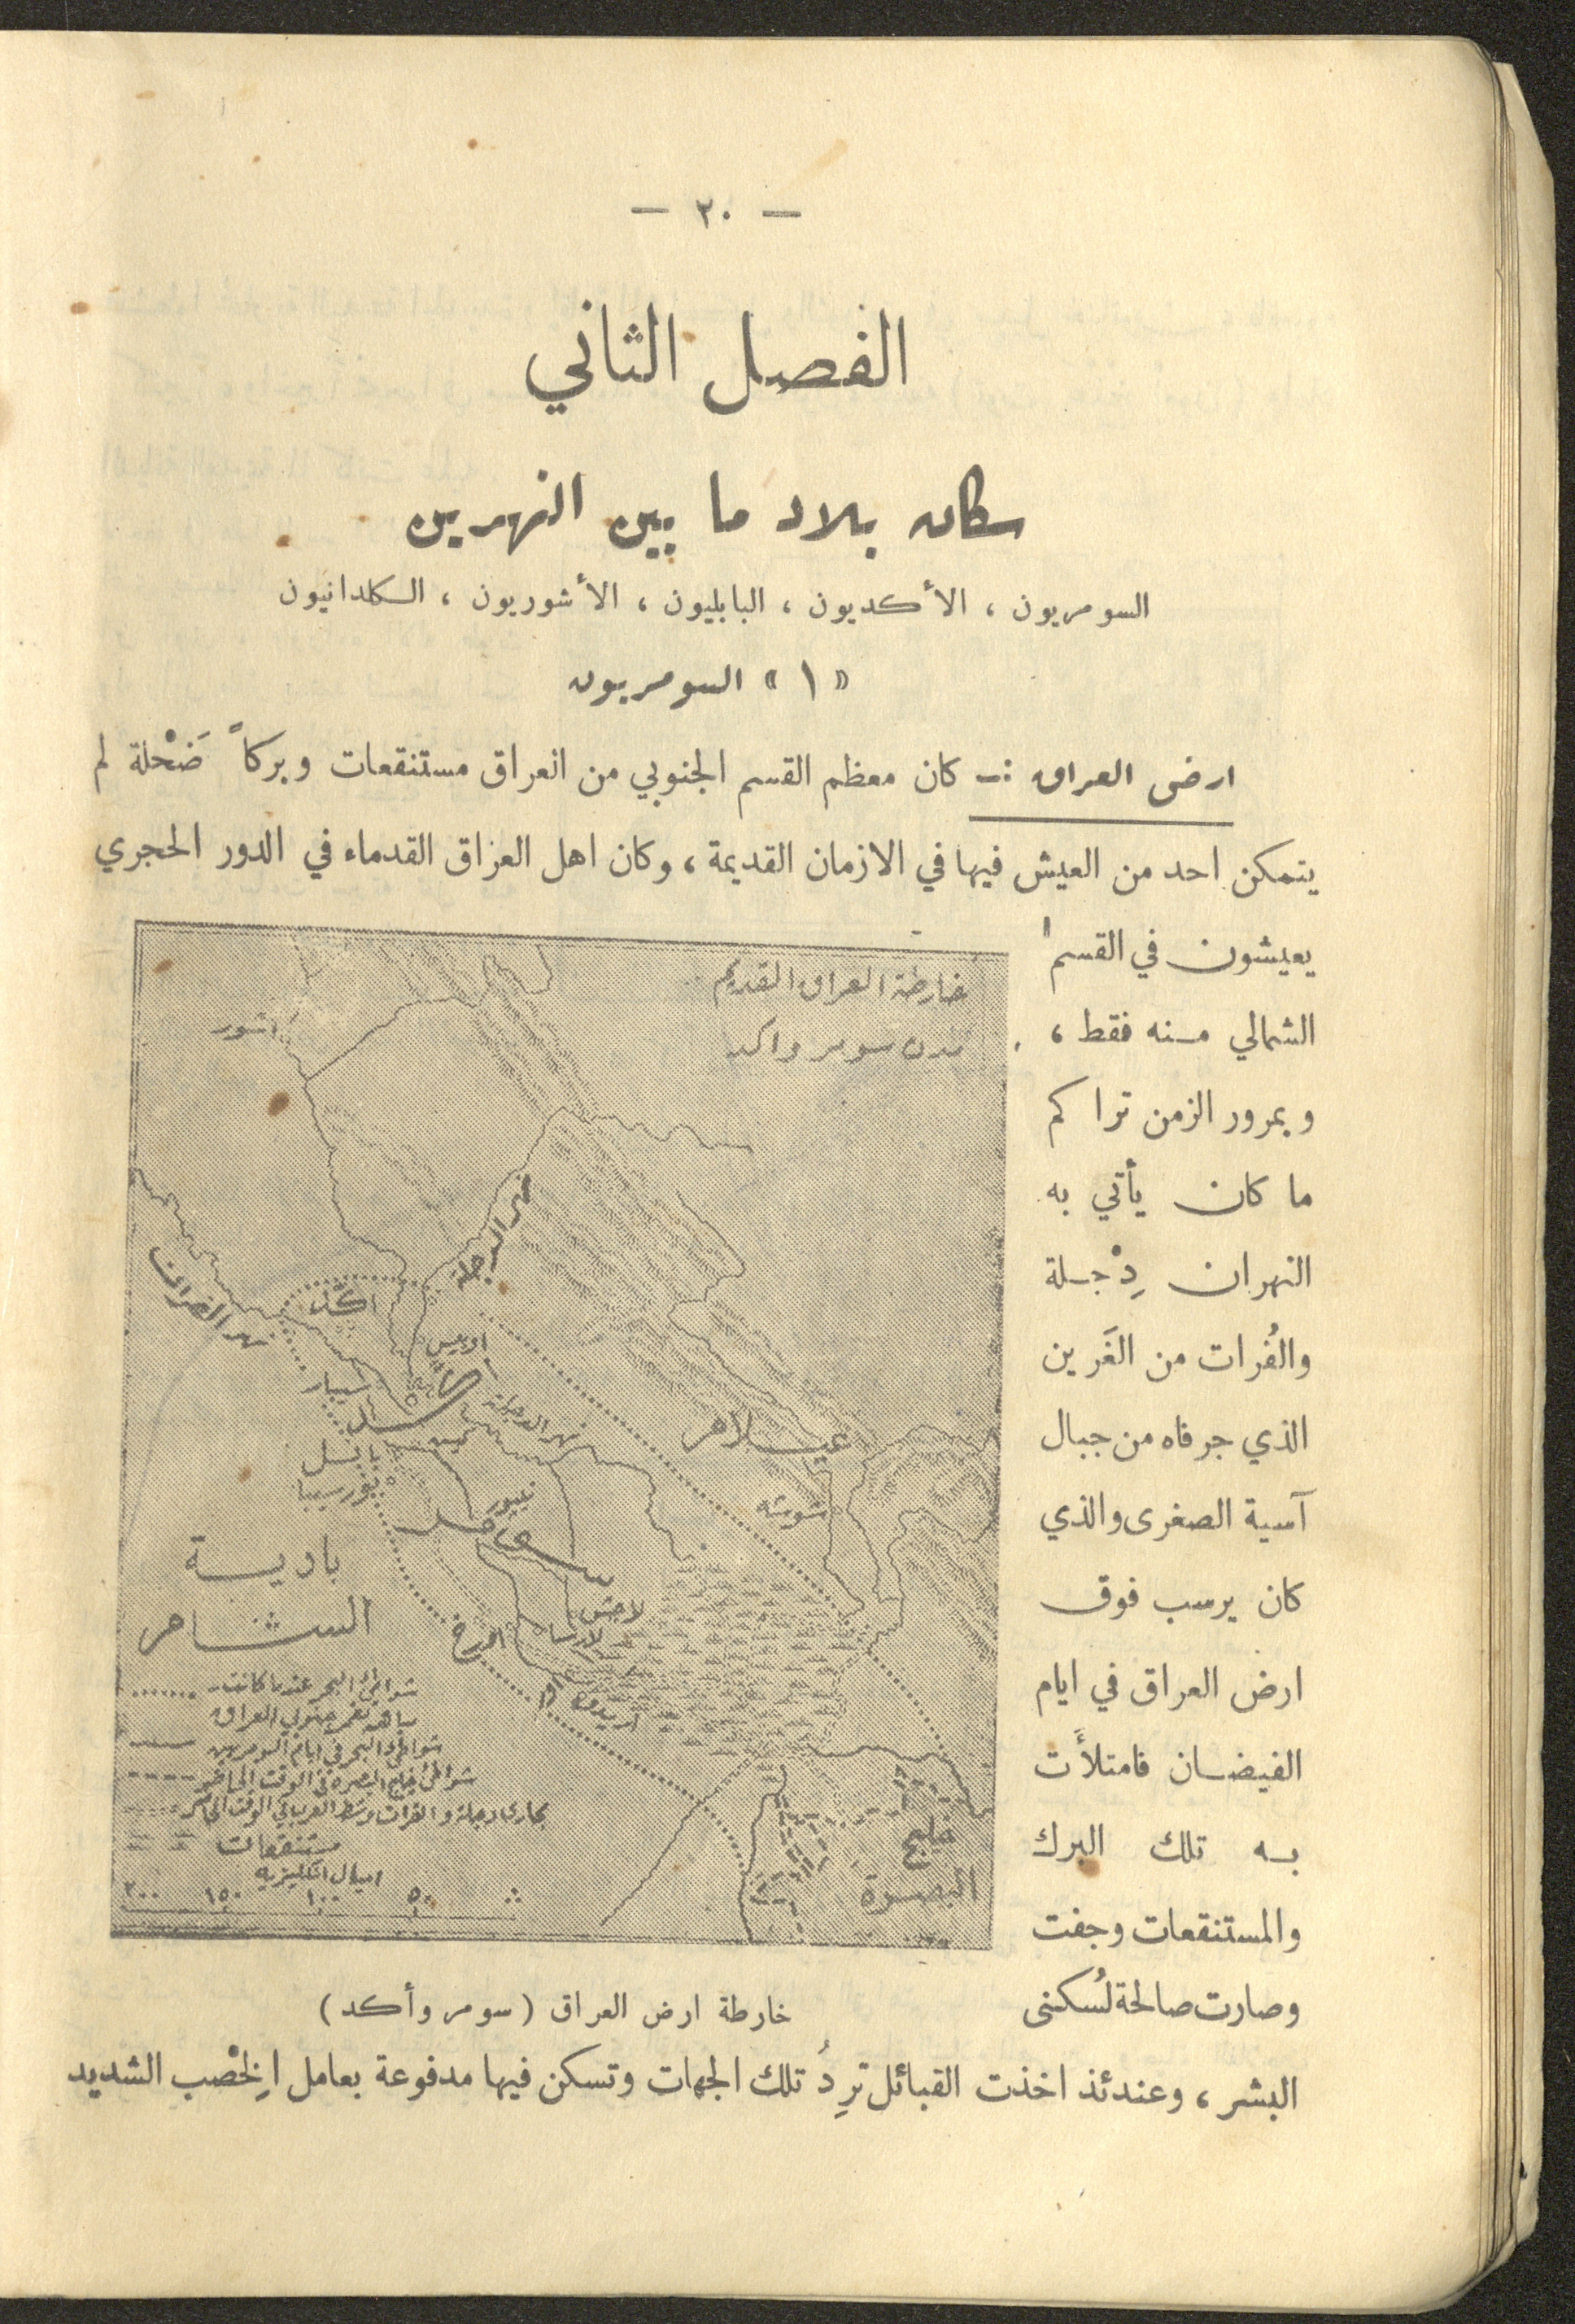 — ٢٠ —
الفصل الثاني
سكان بلاد ما بين النهرين
السومريون ، الأكديون ، البابليون ، الأشوريون ، الكلدانيون
« ١ » السومريون
ارض العراق :ـ كان معظم القسم الجنوبي من العراق مستنقعات وبركاً ضَحْلة لم
يتمكن احد من العيش فيها في الازمان القديمة ، وكان اهل العراق القدماء في الدور الحجري
يعيشون في القسم
الشمالي منه فقط ،
وبمرور الزمن تراكم
ما كان يأتي به
النهران دِجْلة
والفُرات من الغَرين
الذي جرفاه من جبال
آسية الصغرى والذي
كان يرسب فوق
ارض العراق في ايام
الفيضان فامتلأَت
به تلك البرك
والمستنقعات وجفت
وصارت صالحة لسُكنى
خارطة العراق القديم
مدن سومر واكد
اشور
نهر الدجلة
نهر الفرات
اكد
اوبيس
سيبار
كيش
نهر الدجلة
بابل
بورسيبا
عيلام
شوشه
نيبور
سومر
بادية
الشام
لاجش
لارسا
اور
اريدو
شواطئ البحر عندما كانت
مياهه تغمر جنوبي العراق
شواطئ البحر في ايام السومريين
شواطئ خليج البصره في الوقت الحاضر
مجاري دجلة والفرات وشط العرب في الوقت الحاضر
مستنقعات
اميال انكليزيه
٢٠٠ ١٥٠ ١٠٠ ٥٠
خليج
البصرة
خارطة ارض العراق ( سومر وأكد )
البشر ، وعندئذ اخذت القبائل ترِدُ تلك الجهات وتسكن فيها مدفوعة بعامل الخِصْب الشديد